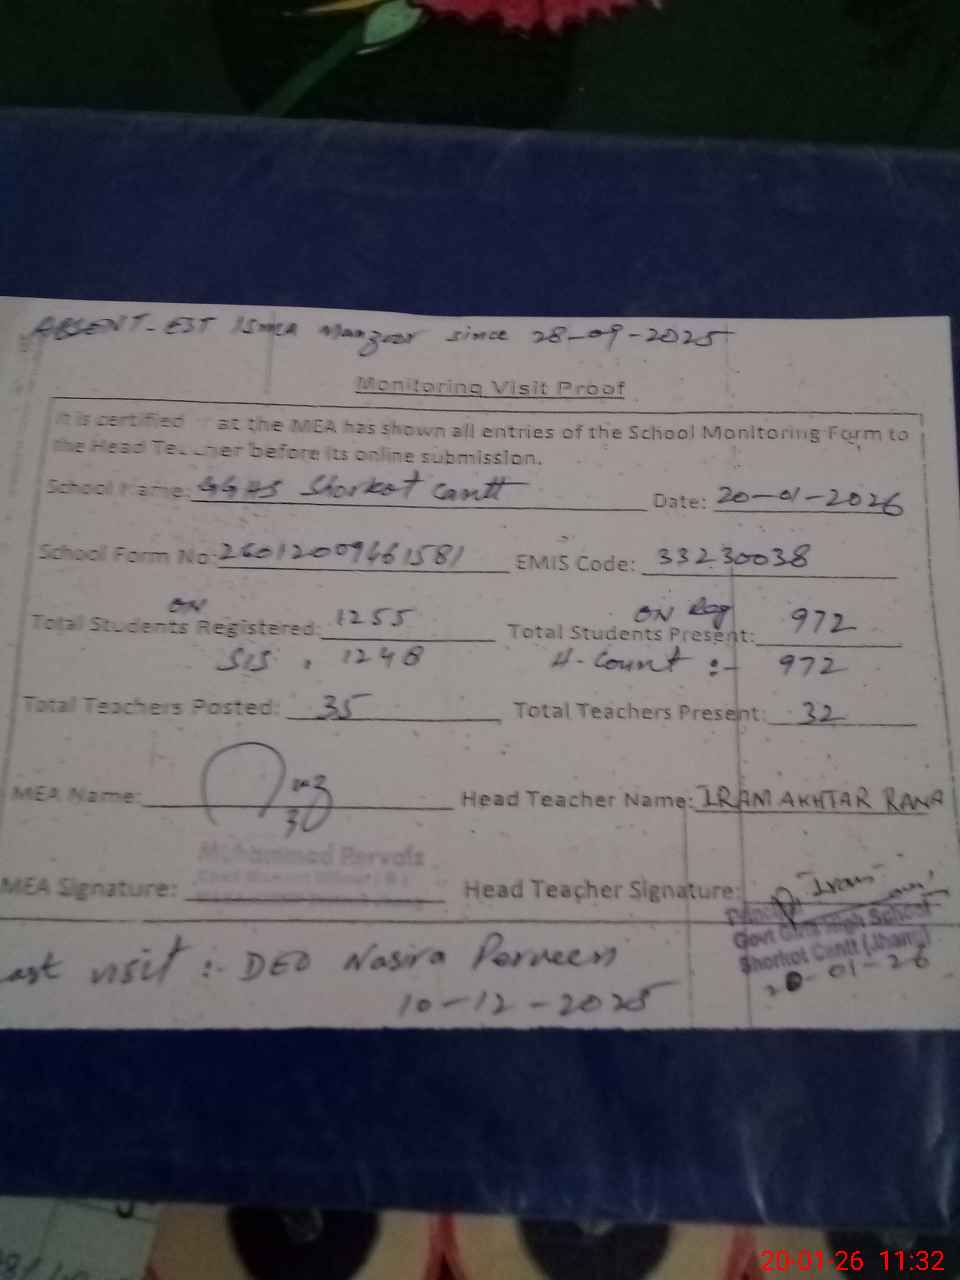 ABSENT - EST Isma Manzoor since 28-09-2025
Monitoring Visit Proof
It is certified at the MEA has shown all entries of the School Monitoring Form to
the Head Teacher before its online submission.
School Name: GGHS Shorkot Cantt Date: 20-01-2026
School Form No: 26012009461581 EMIS Code: 33230038
ON ON Reg
Total Students Registered: 1255 Total Students Present: 972
SIS : 1248 H-Count :- 972
Total Teachers Posted: 35 Total Teachers Present: 32
MEA Name: Head Teacher Name: IRAM AKHTAR RANA
Muhammad Pervaiz
MEA Signature: Head Teacher Signature: Iram
Principal
Govt Girls High School
Shorkot Cantt (Jhang)
20-01-26
ast visit :- DEO Nasira Perveen
10-12-2025
20-01-26 11:32